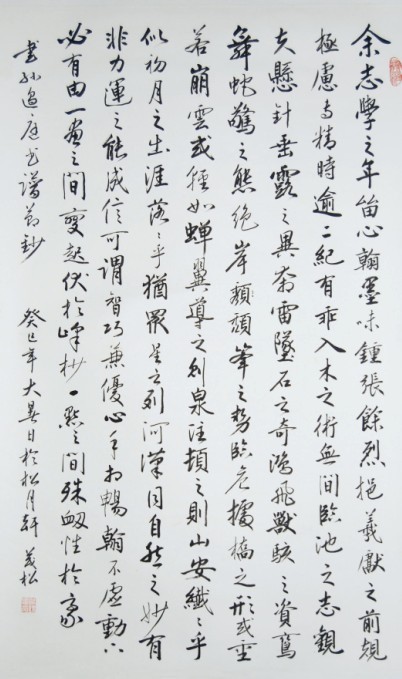 余志學之年留心翰墨味鍾張餘烈挹羲獻之前規
極慮专精時逾二紀有乖入木之術無間臨池之志觀
夫懸針垂露之異奔雷墜石之奇鴻飛獸駭之資鸞
舞蛇驚之態絶岸頹峯之勢臨危據槁之形或重
若崩雲或輕如蟬翼導之則泉注頓之則山安纖〻乎
似初月之出涯落〻乎猶眾星之列河漢同自然之妙有
非力運之能成信可謂智巧兼優心手雙暢翰不虛動下
必有由一畫之間變起伏於峰杪一點之間殊衄性於豪
書孫過庭書譜節鈔 癸巳年大暑日於松月軒 松